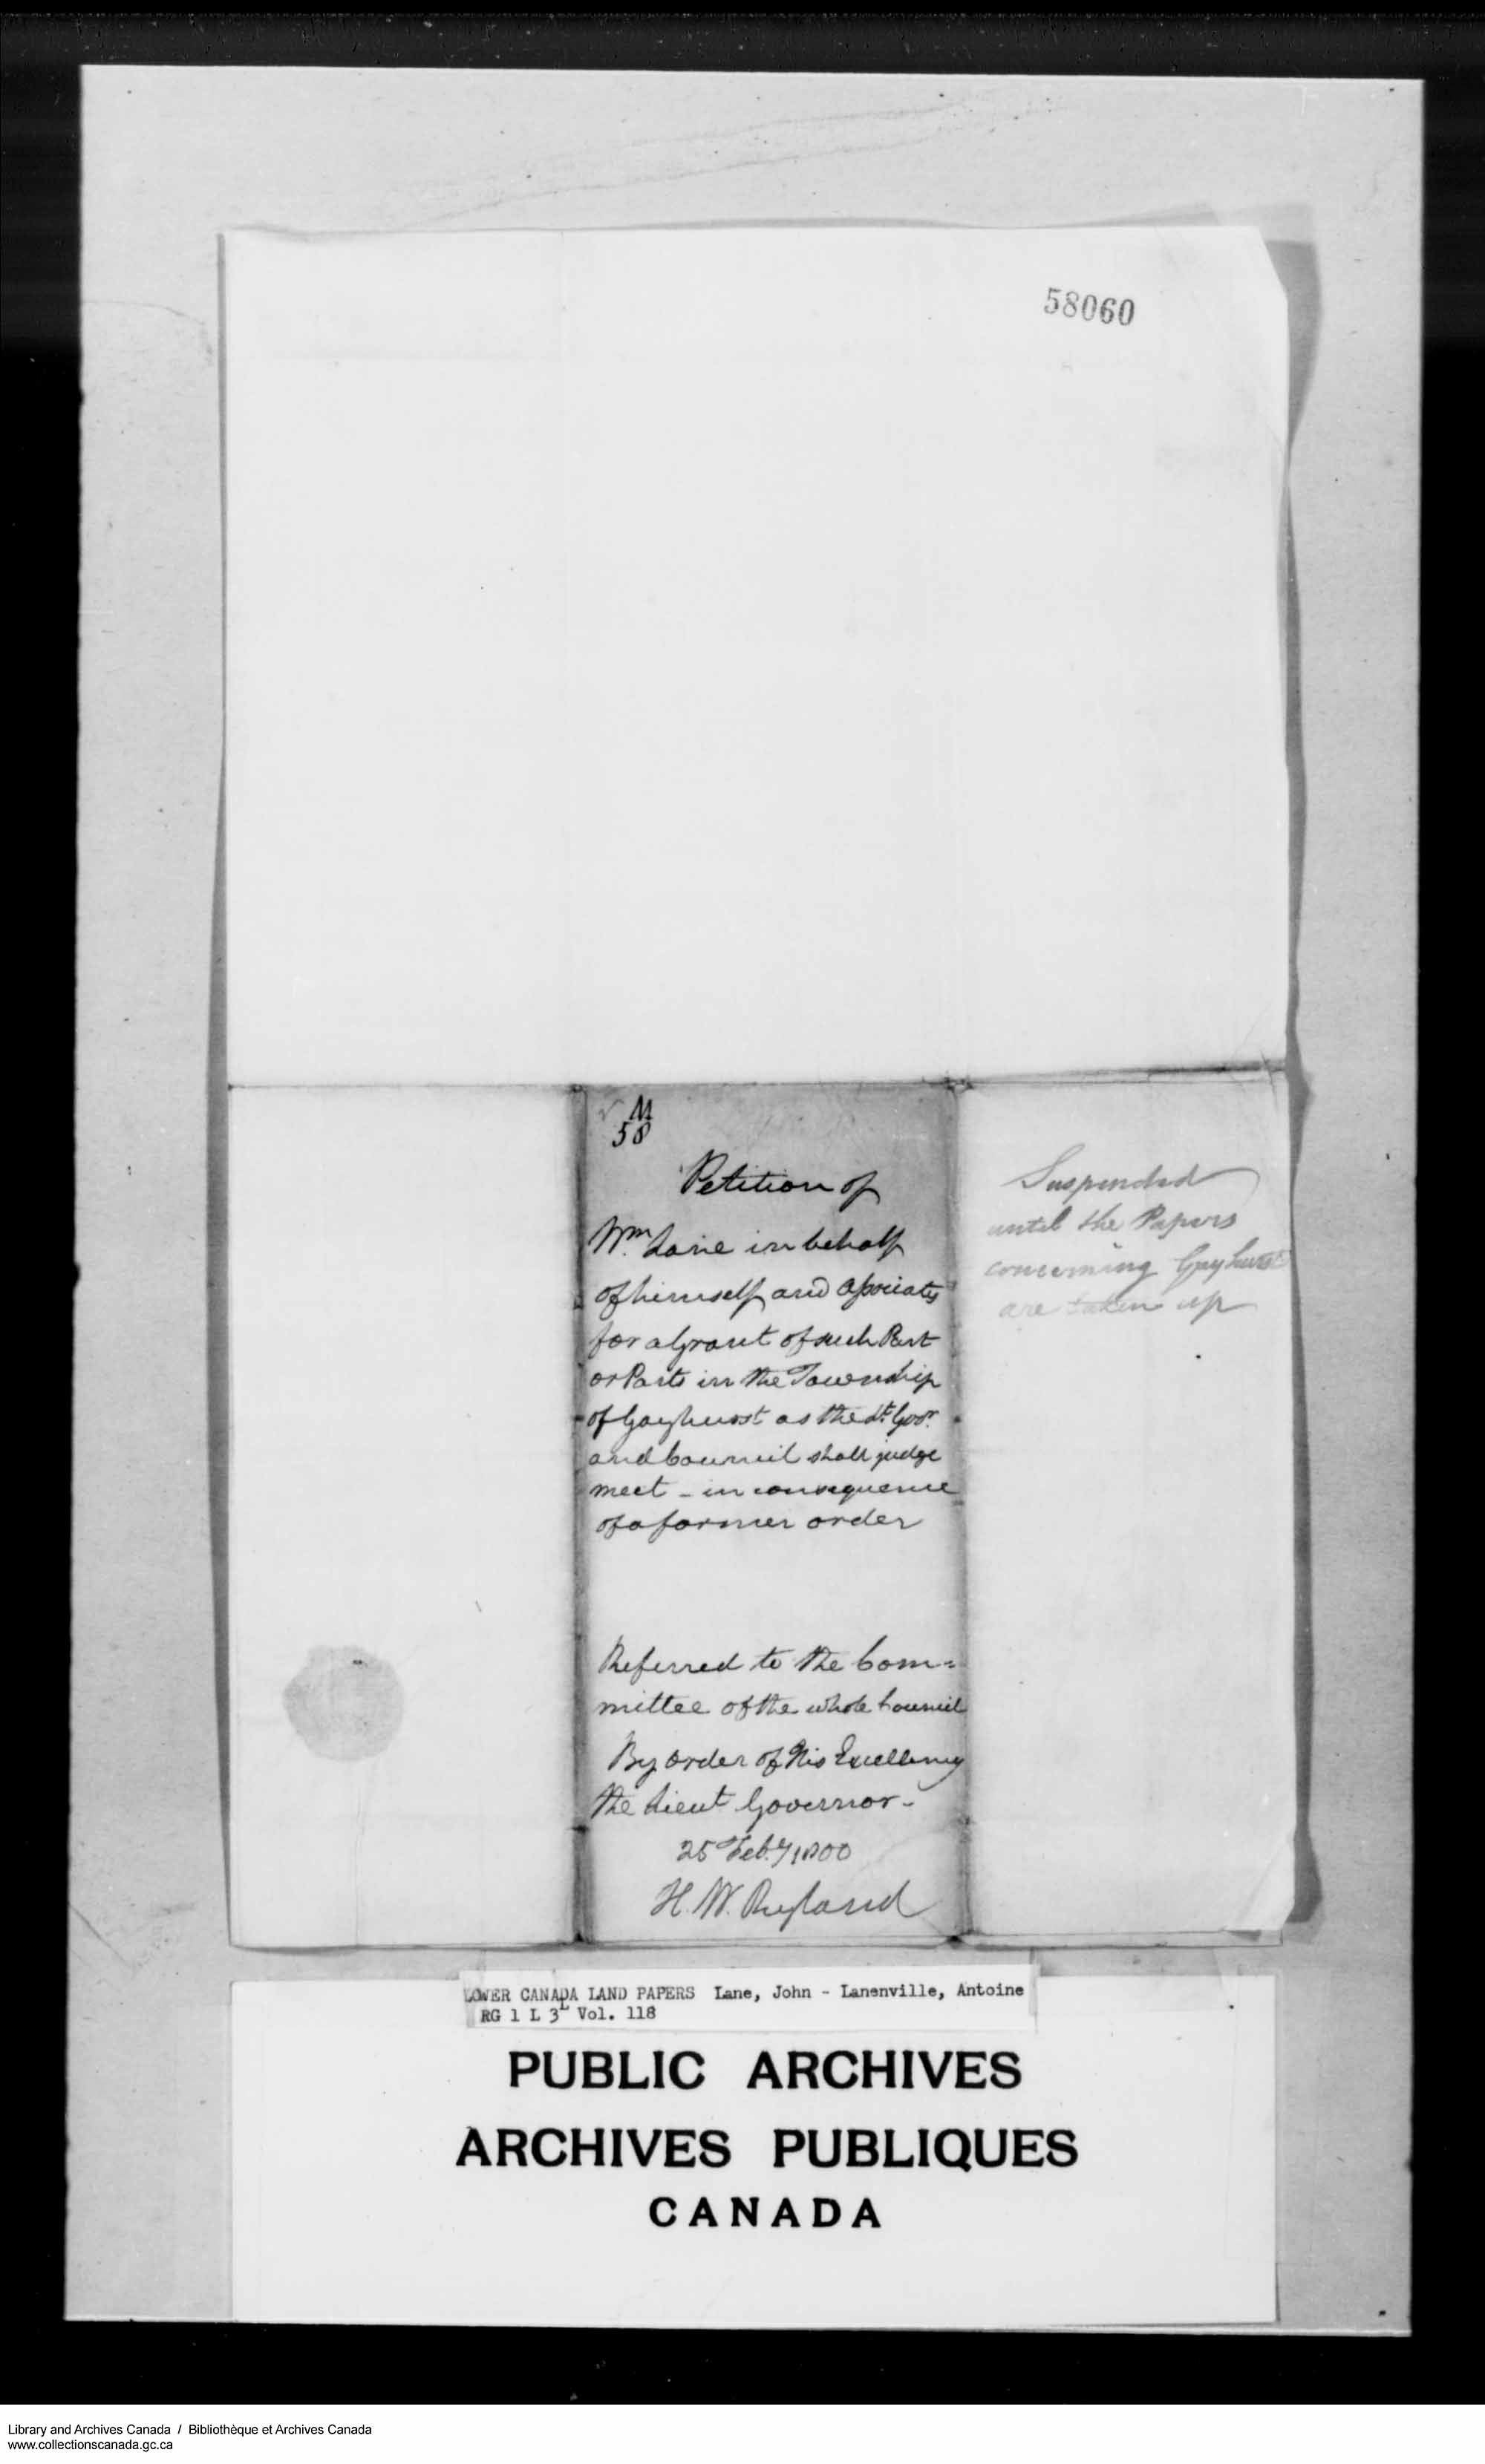 58060
M
58
Petition of
Wm. Lane in behalf
of himself and Associates
for a Grant of such Part
or Parts in the Township
of Gayhurst as the Lt. Govr.
and Council shall judge
meet - in consequence
of a former order
Referred to the Com=
mittee of the whole Council
By order of His Excellency
the Lieut Governor -
25 Feby 1800
H. W. Ryland
Suspended
until the Papers
concerning Gayhurst
are taken up
LOWER CANADA LAND PAPERS Lane, John - Lanenville, Antoine
RG 1 L 3L Vol. 118
PUBLIC ARCHIVES
ARCHIVES PUBLIQUES
CANADA
Library and Archives Canada / Bibliothèque et Archives Canada
www.collectionscanada.gc.ca